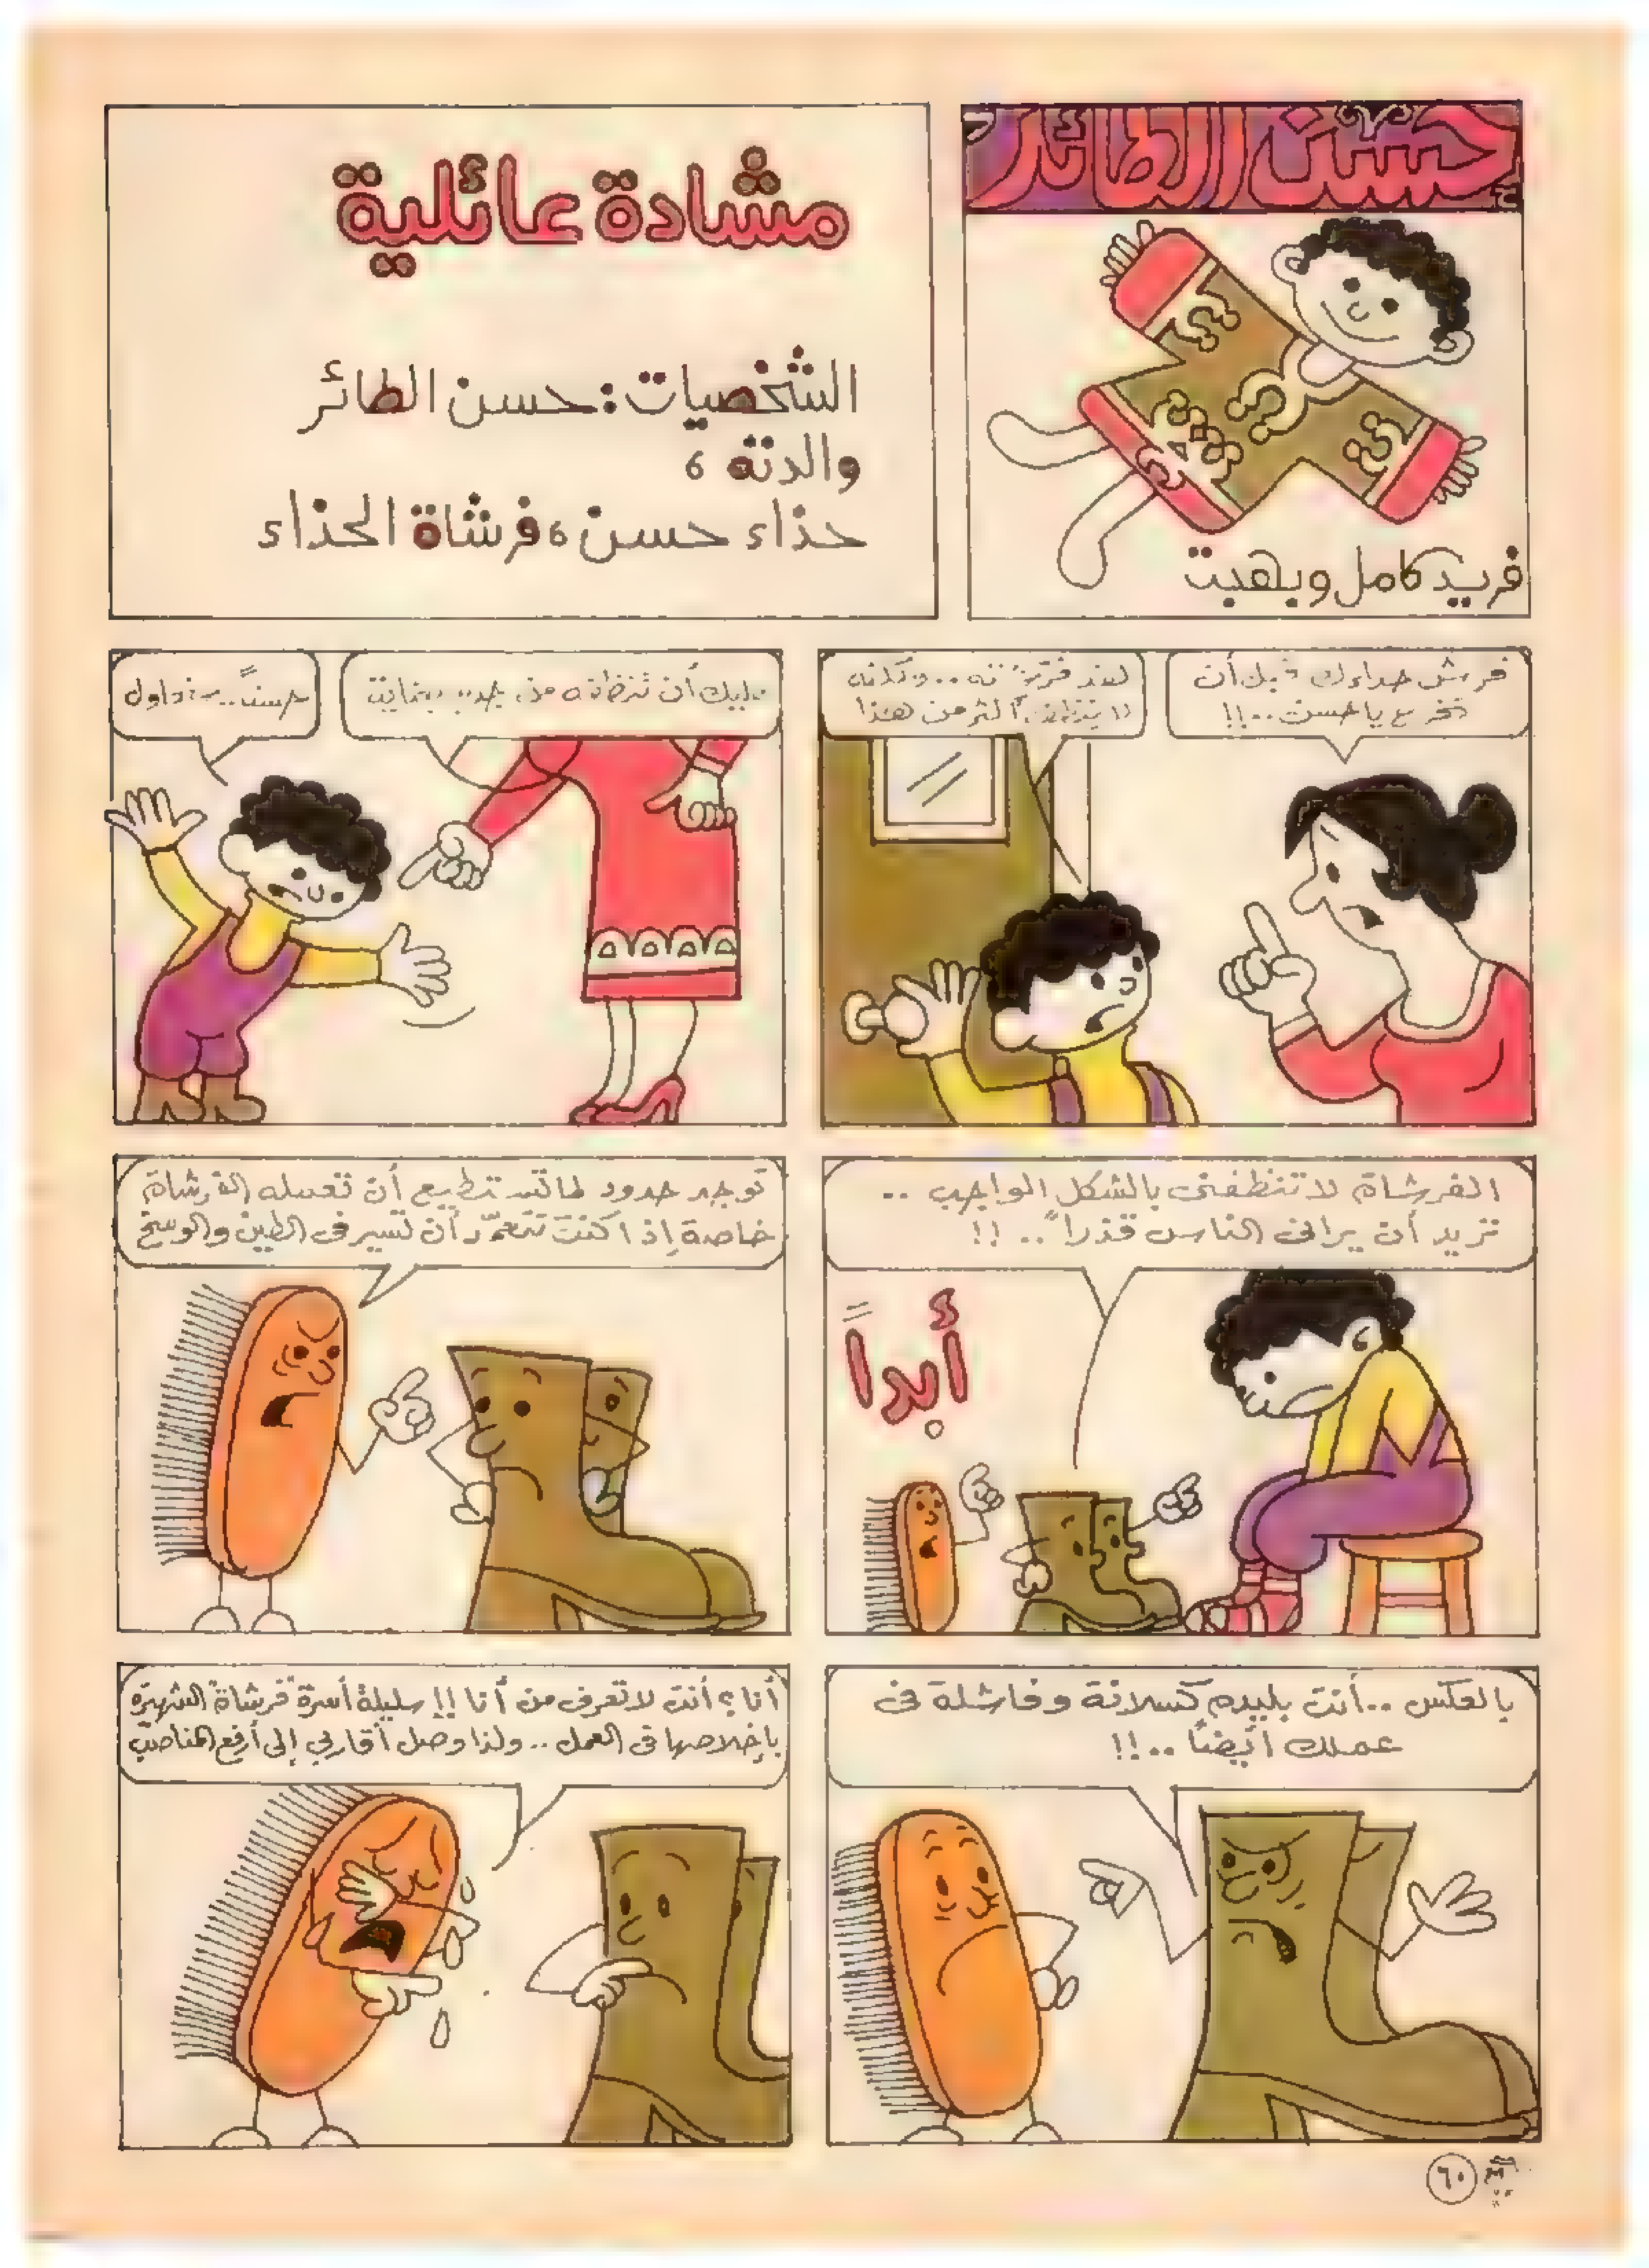 حسن الطائر
فريد كامل وبهجت
مشادة عائلية
الشخصيات: حسن الطائر
والدته،
حذاء حسن، فرشاة الحذاء
فرش حذاءك قبل أن
تخرج يا حسن..!!
لقد فرشته.. ولكنه
لا ينظف أكثر من هذا
عليك أن تنظفه من جديد بعناية
حسناً.. سنحاول
الفرشاة لا تنظفنى بالشكل الواجب ..
تريد أن يرانى الناس قذراً .. !!
أبداً
توجد حدود لما تستطيع أن تعمله الفرشاة
خاصة إذا كنت تتعمّد أن تسير فى الطين والوسخ
بالعكس .. أنت بليدة كسلانة وفاشلة فى
عملك أيضاً ..!!
أنا؟ أنت لا تعرف من أنا!! سليلة أسرة "فرشاة" الشهيرة
بإخلاصها فى العمل .. ولذا وصل أقاربي إلى أرفع المناصب
٦٠